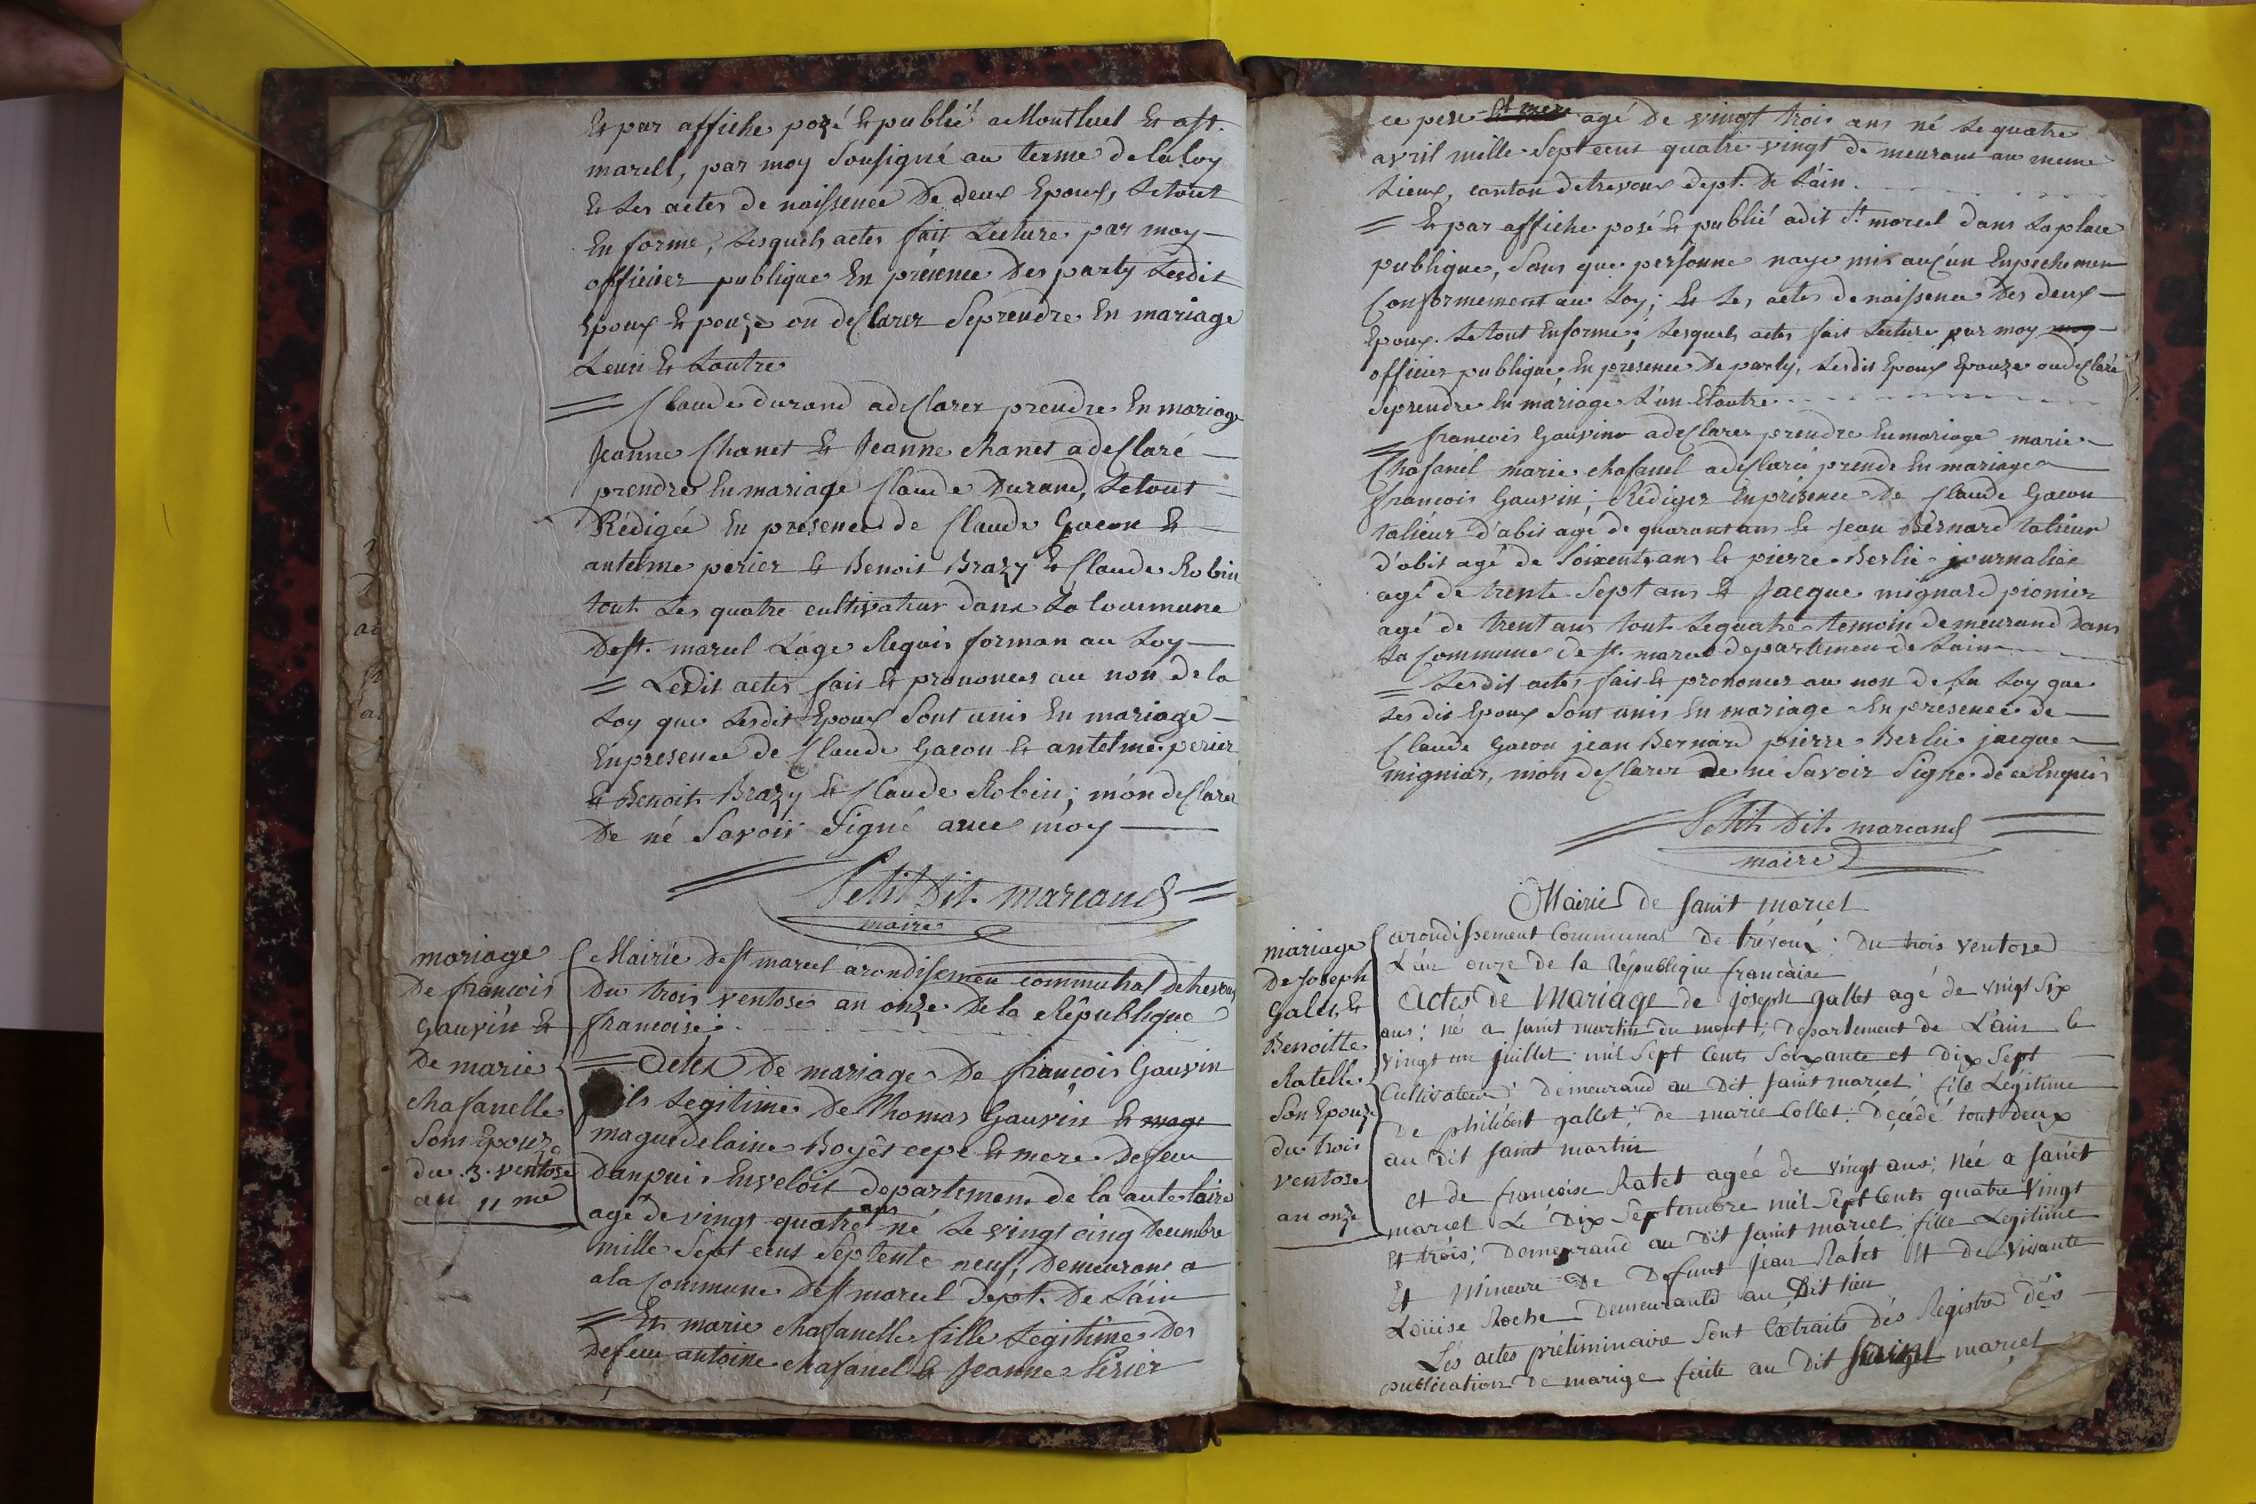 Et par affiche pozé Et publié a Montluel Et a st.
marcll, par moy Sousigné au terme de la loy
Et Les actes de naissence De deux Epoux, Le tout
En forme, Lesquels actes fait Lecture par moy
officier publique En présence Des party Lesdit
Epoux Epouze on desClarer Seprendre En mariage
L'eun Et Lautre
Claude durand adesClarer prendre En mariage
Jeanne Chanet Et Jeanne chanet adesClaré
prendre En mariage Claude Durand, Le tout
Rédigée En présence de Claude Gacon Et
antelme perier Et Benoit Brazy Et Claude Robin
tout Les quatre cultivateur dans La Commune
De st. marcel L'age Requis forman au Loy
Lesdit actes fait Et prononcer au non de la
Loy que Lesdit Epoux Sont unis En mariage
En presence de Claude Gacon Et antelme perier
Et Benoit Brazy Et Claude Robin; m'on desClarer
De né Savoir Signé avec moy
Petit Dit marcand
maire
mariage
De francois
Gauvin Et
De marie
chafanelle
Sons Epouze
du .3. ventose
an 11 me
Mairie De st marcel arondisemen communal de trevoux
Du trois ventose an onze De la République
francoise
Actes De mariage De francois Gauvin
fils Legitime De Thomas Gauvin Et
maguedelaine Boyet cepe Et mere De feu
Danpuis Enveloit departemen de la aute Loire
agé de vingt quatre ans né Le vingt cinq Decembre
mille Sept cent Septente neuf, Demeurant a
a la Commune De st marcel Dept. De Láin
Et marie chafanelle fille Legitime Des
De feu antoine chafanel Et Jeanne Périer
ce pere Et mere agé De vingt trois ans né Le quatre
avril mille Sept cent quatre vingt de meurant au meme
Lieux, canton de trevoux dept. De Láin.
Et par affiche posé Et publié adit St. marcel dans La place
publique, Sans que personne naye mis auçun Enpechemen
Conformément au Loy; Et Les actes de naissence Des deux
Epoux. Le tout En forme; Lesquels actes fait Lecture par moy moy
officier publique, En présence De party, Lesdit Epoux Epouze on desClaré
seprendre En mariage L'un Et Lautre
francois Gauvin adesClarer prendre En mariage marie
Chafanel marie chafanel adesClaré prendre En mariage
francois Gauvin; Rédiger En présence De Claude Gacon
talieur d'abit agé de quarant ans Et Jean Bernard talieur
d'abit agé de Soixente ans Et pierre Berlie journalier
agé de trente Sept ans Et Jacque mignard pionier
agé de trent ans tout Le quatre temoin demeurand Dans
La Commune de st. marcel departemen de Lain
Lesdit actes fait Et prononcer au non de La Loy que
Lesdit Epoux Sont unis En mariage En présence de
Claude Gacon jean Bernard pierre Berlie jacque
migniar, m'on desClarer de né Savoir Signe de ce Enquis
Petit Dit marcand
maire
Mairie de saint marcel
mariage
De Joseph
Galet Et
Benoitte
Ratelle
Son Epouze
du trois
ventose
an onze
arondissement Communal de trévoux: Du trois ventose
L'an onze de la République francaise
Actes de Mariage de joseph gallet agé de vingt six
ans; né a saint martin du mont; departement de L'ain le
vingt un juillet mil sept Cents soixante et dix sept
Cultivateur; demeurand au dit saint marcel; fils Légitime
De philibert gallet; de marie Collet: décédé tout deux
au dit saint martin
et de francoise Ratet agée de vingt ans; née a saint
marcel Le dix septembre mil sept Cents quatre vingt
Et trois; demeurand au dit saint marcel; fille Legitime
Et Mineure De Defunt Jean Ratet Et De vivante
Loüise Roche Demeurante au Dit lieu
Lés actes préliminaire sont Extraits dés Registre dés
publication de marige faite au dit saint marcel